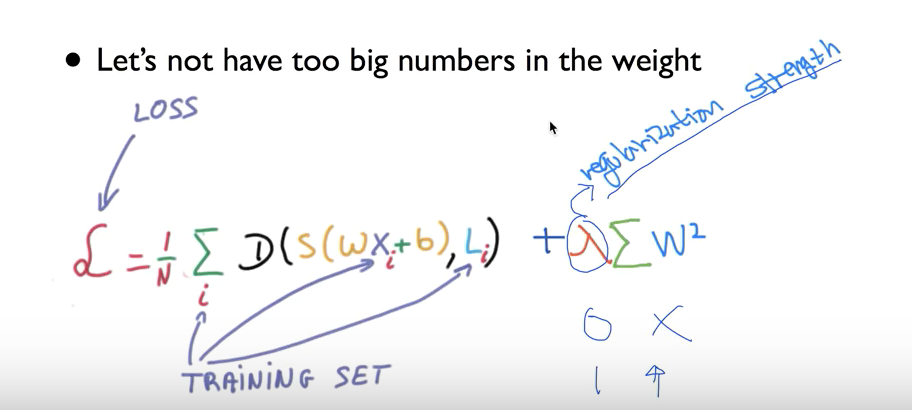 • Let's not have too big numbers in the weight
regularization strength
LOSS
ℒ = 1/N Σᵢ D(S(WXᵢ+b), Lᵢ) + λ Σ W²
0 X
1 ↑
TRAINING SET